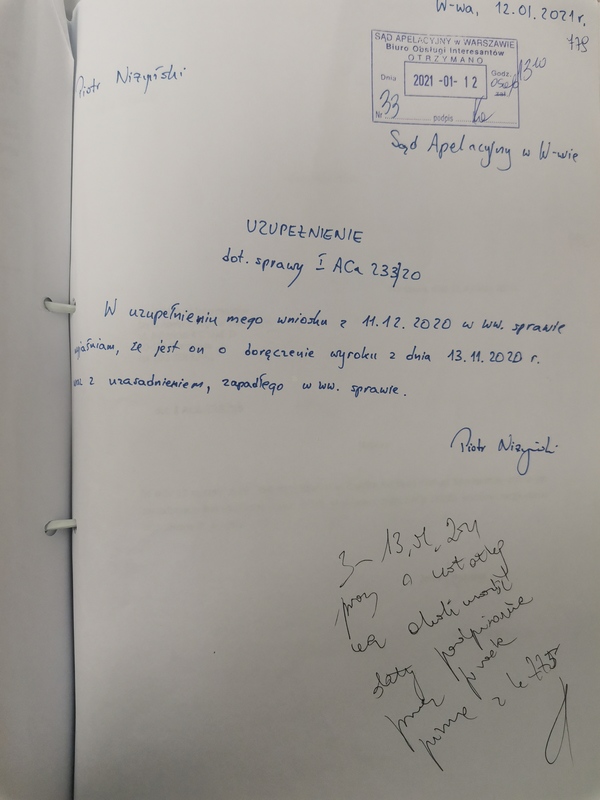 W-wa, 12.01.2021 r.
779
SĄD APELACYJNY w WARSZAWIE
Biuro Obsługi Interesantów
OTRZYMANO
Dnia 2021 -01- 12 Godz. 13 10
Nr 33 podpis
Piotr Niżyński
Sąd Apelacyjny w W-wie
UZUPEŁNIENIE
dot. sprawy I ACa 233/20
W uzupełnieniu mego wniosku z 11.12.2020 w ww. sprawie
yjaśniam, że jest on o doręczenie wyroku z dnia 13.11.2020 r.
z uzasadnieniem, zapadłego w ww. sprawie.
Piotr Niżyński
13.
o notatkę
daty podpisania
przez
z k. 775